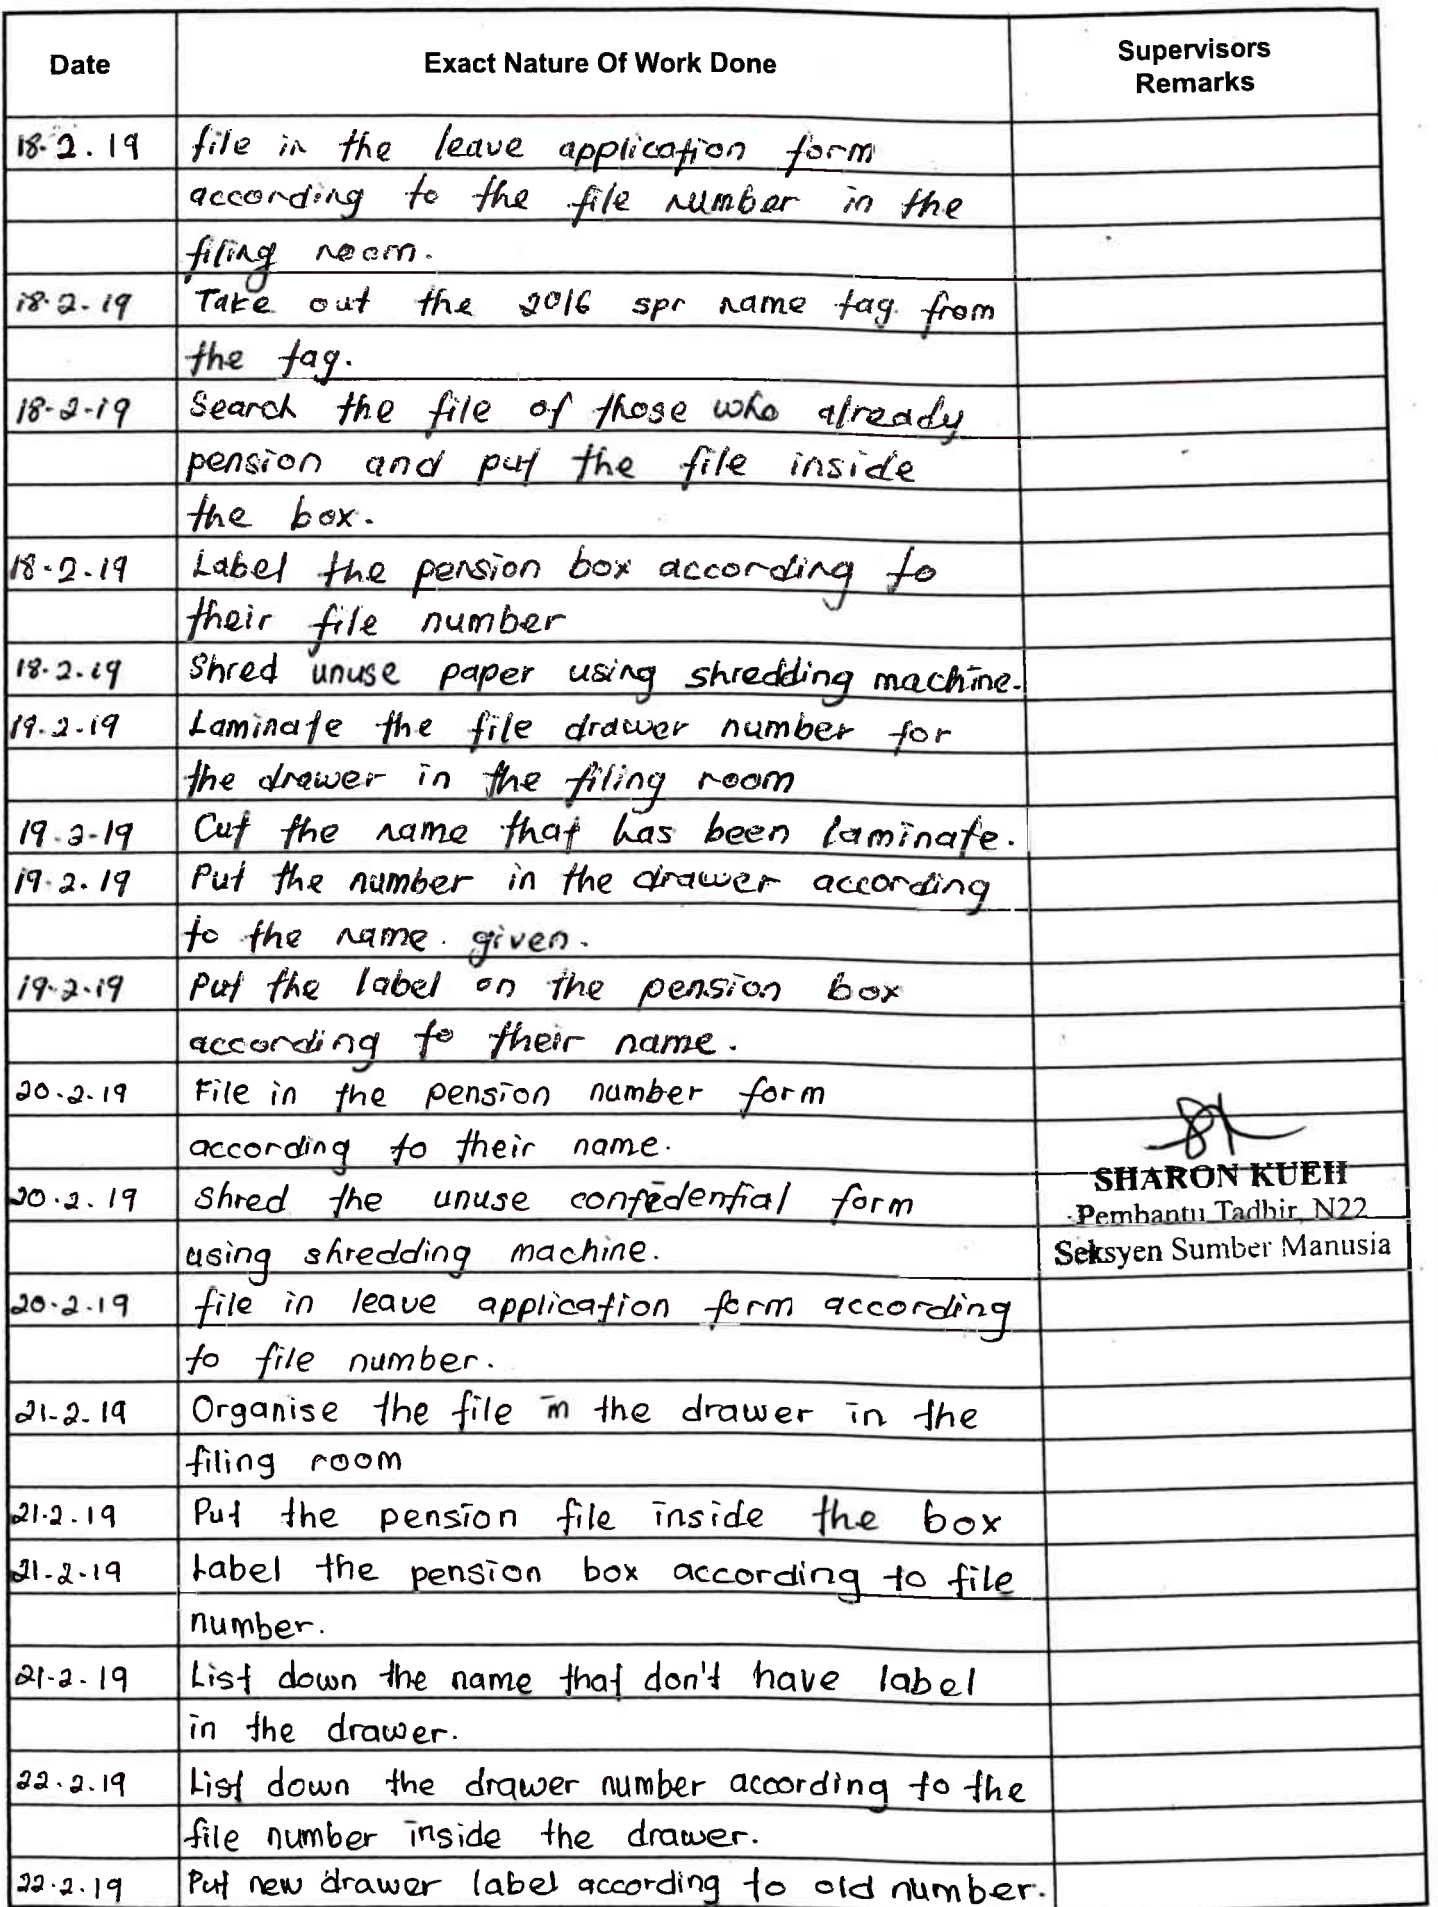 Date Exact Nature Of Work Done Supervisors
Remarks
18.2.19 file in the leave application form
according to the file number in the
filing room.
18.2.19 Take out the 2016 spr name tag from
the tag.
18-2-19 Search the file of those who already
pension and put the file inside
the box.
18.2.19 Label the pension box according to
their file number
18.2.19 Shred unuse paper using shredding machine.
19.2.19 Laminate the file drawer number for
the drawer in the filing room
19.2-19 Cut the name that has been laminate.
19.2.19 Put the number in the drawer according
to the name. given.
19.2.19 Put the label on the pension box
according to their name.
20.2.19 File in the pension number form
according to their name.
SHARON KUEH
20.2.19 Shred the unuse confedential form
Pembantu Tadbir, N22
using shredding machine.
Seksyen Sumber Manusia
20.2.19 file in leave application form according
to file number.
21-2-19 Organise the file in the drawer in the
filing room
21.2.19 Put the pension file inside the box
21-2-19 Label the pension box according to file
number.
21-2-19 List down the name that don't have label
in the drawer.
22.2.19 List down the drawer number according to the
file number inside the drawer.
22.2.19 Put new drawer label according to old number.